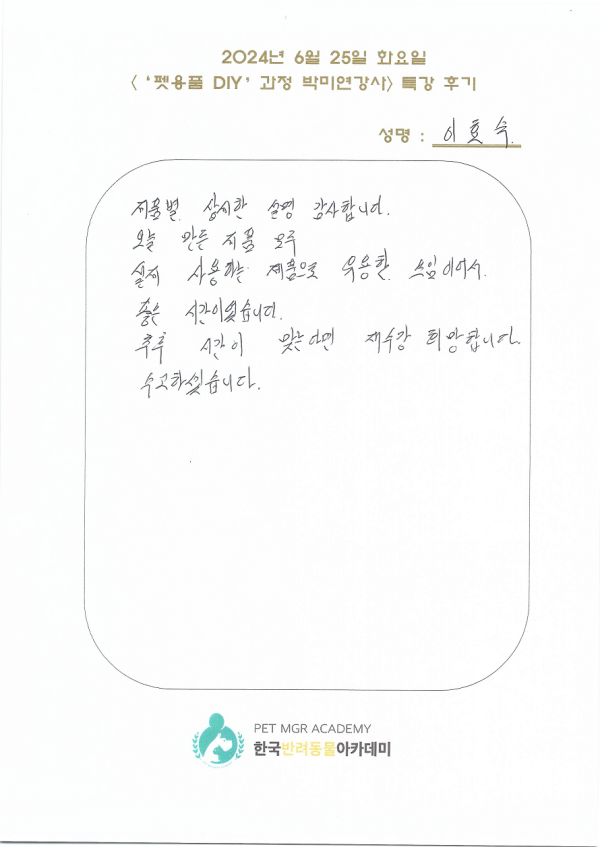 2024년 6월 25일 화요일
< ‘펫용품 DIY’ 과정 박미연강사> 특강 후기
성명 : 이효숙.
제품별 상세한 설명 감사합니다.
오늘 만든 제품 모두
실제 사용하는 제품으로 유용한 쓰임이어서.
좋은 시간이였습니다.
추후 시간이 맞는다면 재수강 희망합니다.
수고하셨습니다.
PET MGR ACADEMY
한국반려동물아카데미